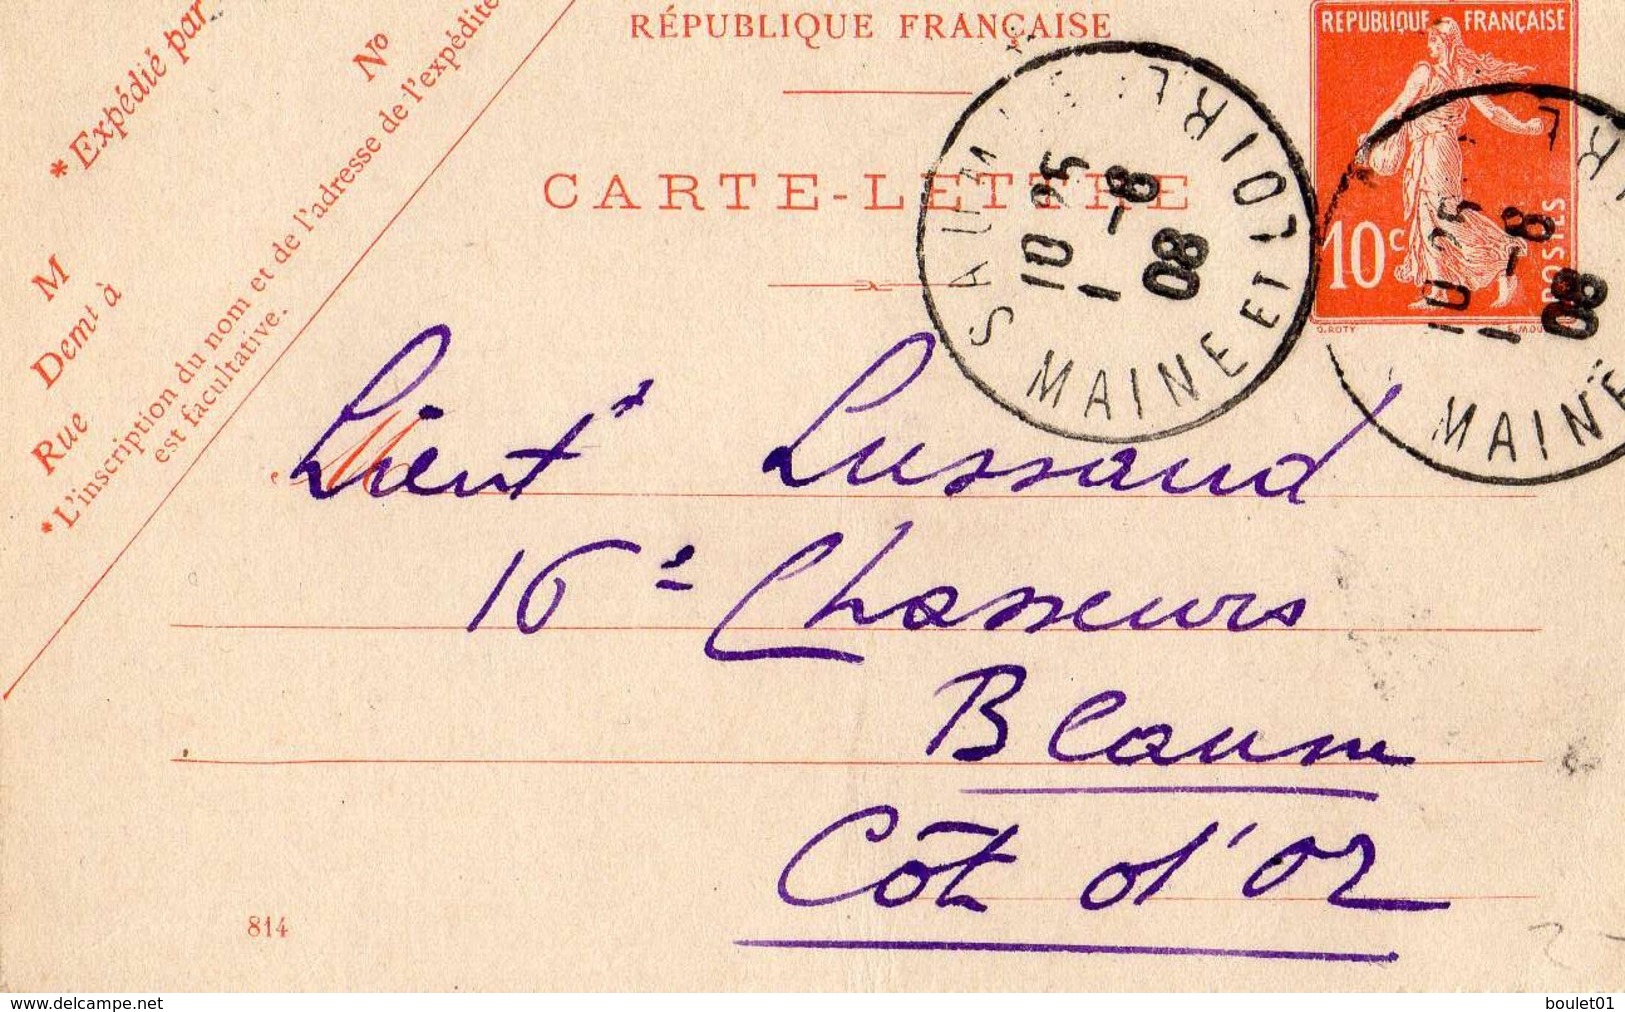 RÉPUBLIQUE FRANÇAISE
CARTE-LETTRE
* Expédié par
No
M
Demt à
Rue
* L'inscription du nom et de l'adresse de l'expédite
est facultative.
REPUBLIQUE FRANÇAISE
10 c
POSTES
O. ROTY
SAUMUR
MAINE ET LOIRE
10 25
8-1
08
MAINE
10 25
8-1
08
Lieut Lussaud
16e Chasseurs
Beaune
Côte d'Or
814
delcampe.net
boulet01